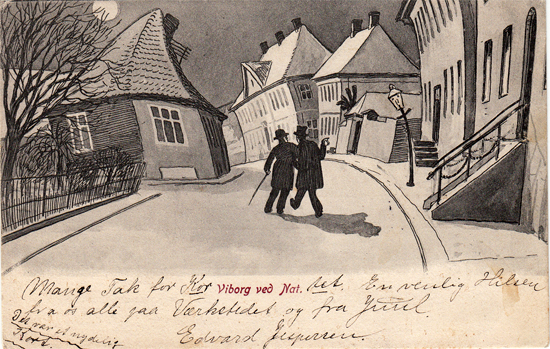 Mange Tak for Kortet. En venlig Hilsen
Viborg ved Nat.
fra os alle paa Værkstedet og fra Juul
Edvard Jespersen.
Det var et nydelig
Kort.